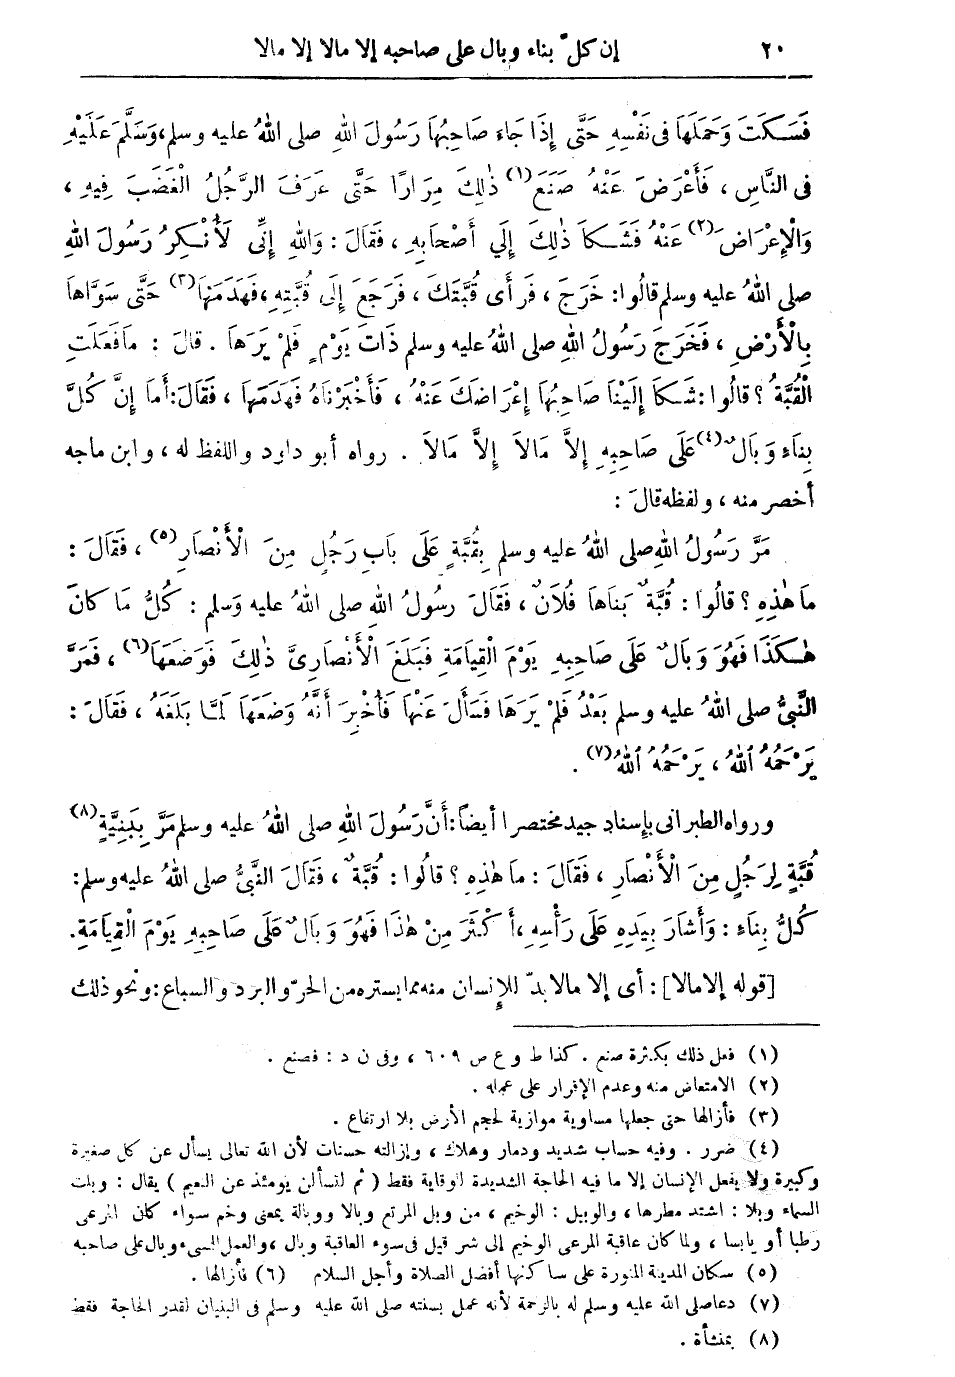 ٢٠ إن كلّ بناء وبال على صاحبه إلا مالا إلا مالا
فَسَكَتَ وَحَمَلَهَا فى نَفْسِهِ حَتَّى إِذَا جَاءَ صَاحِبُهَا رَسُولَ اللهِ صلى اللهُ عليه وسلم، وَسَلَّمَ عَلَيْهِ
فى النَّاسِ ، فَأَعْرَضَ عَنْهُ صَنَعَ (١) ذٰلِكَ مِرَارًا حَتَّى عَرَفَ الرَّجُلُ الْغَضَبَ فِيهِ ،
وَالْإِعْرَاضَ (٢) عَنْهُ فَشَكَا ذٰلِكَ إِلَي أَصْحَابِهِ ، فَقَالَ : وَاللهِ إِنِّى لَأُنْكِرُ رَسُولَ اللهِ
صلى اللهُ عليه وسلم قالُوا: خَرَجَ ، فَرَأَى قُبَّتَكَ ، فَرَجَعَ إِلَى قُبَّتِهِ ، فَهَدَمَهَا (٣) حَتَّى سَوَّاهَا
بِالْأَرْضِ ، فَخَرَجَ رَسُولُ اللهِ صلى اللهُ عليه وسلم ذَاتَ يَوْمٍ فَلَمْ يَرَهَا . قالَ : مَا فَعَلَتِ
الْقُبَّةُ ؟ قالُوا : شَكَا إِلَيْنَا صَاحِبُهَا إِعْرَاضَكَ عَنْهُ ، فَأَخْبَرْنَاهُ فَهَدَمَهَا ، فَقَالَ : أَمَا إِنَّ كُلَّ
بِنَاءٍ وَبَالٌ (٤) عَلَى صَاحِبِهِ إِلاَّ مَالاَ إِلاَّ مَالاَ . رواه أبو داود واللفظ له ، وابن ماجه
أخصر منه ، ولفظه قالَ :
مَرَّ رَسُولُ اللهِ صلى اللهُ عليه وسلم بِقُبَّةٍ عَلَى بَابِ رَجُلٍ مِنَ الْأَنْصَارِ (٥) ، فَقَالَ :
مَا هٰذِهِ ؟ قالُوا : قُبَّةٌ بَنَاهَا فُلَانٌ ، فَقَالَ رسُولُ اللهِ صلى اللهُ عليه وَسلم : كُلُّ مَا كانَ
هٰكَذَا فَهُوَ وَبَالٌ عَلَى صَاحِبِهِ يَوْمَ الْقِيَامَةِ فَبَلَغَ الْأَنْصَارِىَّ ذٰلِكَ فَوَضَعَهَا (٦) ، فَمَرَّ
النَّبِىُّ صلى اللهُ عليه وسلم بَعْدُ فَلَمْ يَرَهَا فَسَأَلَ عَنْهَا فَأُخْبِرَ أَنَّهُ وَضَعَهَا لَمَّا بَلَغَهُ ، فَقَالَ :
يَرْحَمُهُ اللهُ ، يَرْحَمُهُ اللهُ (٧) .
ورواه الطبرانى بإسنادٍ جيد مختصرا أيضاً : أَنَّ رَسُولَ اللهِ صلى اللهُ عليه وسلم مَرَّ بِبَنِيَّةٍ (٨)
قُبَّةٍ لِرَجُلٍ مِنَ الْأَنْصَارِ ، فَقَالَ : مَا هٰذِهِ ؟ قالُوا : قُبَّةٌ ، فَقَالَ النَّبِىُّ صلى اللهُ عليه وسلم :
كُلُّ بِنَاءٍ : وَأَشَارَ بِيَدِهِ عَلَى رَأْسِهِ ، أَكْثَرَ مِنْ هٰذَا فَهُوَ وَبَالٌ عَلَى صَاحِبِهِ يَوْمَ الْقِيَامَةِ .
[قوله إلا مالا] : أى إلا مالا بدّ للإنسان منه مما يستره من الحرّ والبرد والسباع : ونحو ذلك
(١) فعل ذلك بكثرة صنع . كذا ط و ع ص ٦٠٩ ، وفى ن د : فصنع .
(٢) الامتعاض منه وعدم الإقرار على عمله .
(٣) فأزالها حتى جعلها مساوية موازية لحجم الأرض بلا ارتفاع .
(٤) ضرر . وفيه حساب شديد ودمار وهلاك ، وإزالته حسنات لأن الله تعالى يسأل عن كل صغيرة
وكبيرة ولا يفعل الإنسان إلا ما فيه الحاجة الشديدة لوقاية فقط ( ثم لتسألن يومئذ عن النعيم ) يقال : وبلت
السماء وبلا : اشتد مطرها ، والوبيل : الوخيم ، من وبل المرتع وبالا ووبالة بمعنى وخم سواء كان المرعى
رطبا أو يابسا ، ولما كان عاقبة المرعى الوخيم إلى شر قيل فى سوء العاقبة وبال ، والعمل السىء وبال على صاحبه
(٥) سكان المدينة المنورة على ساكنها أفضل الصلاة وأجل السلام (٦) فأزالها .
(٧) دعا صلى الله عليه وسلم له بالرحمة لأنه عمل بسنته صلى الله عليه وسلم فى البنيان لقدر الحاجة فقط
(٨) بمنشأة .